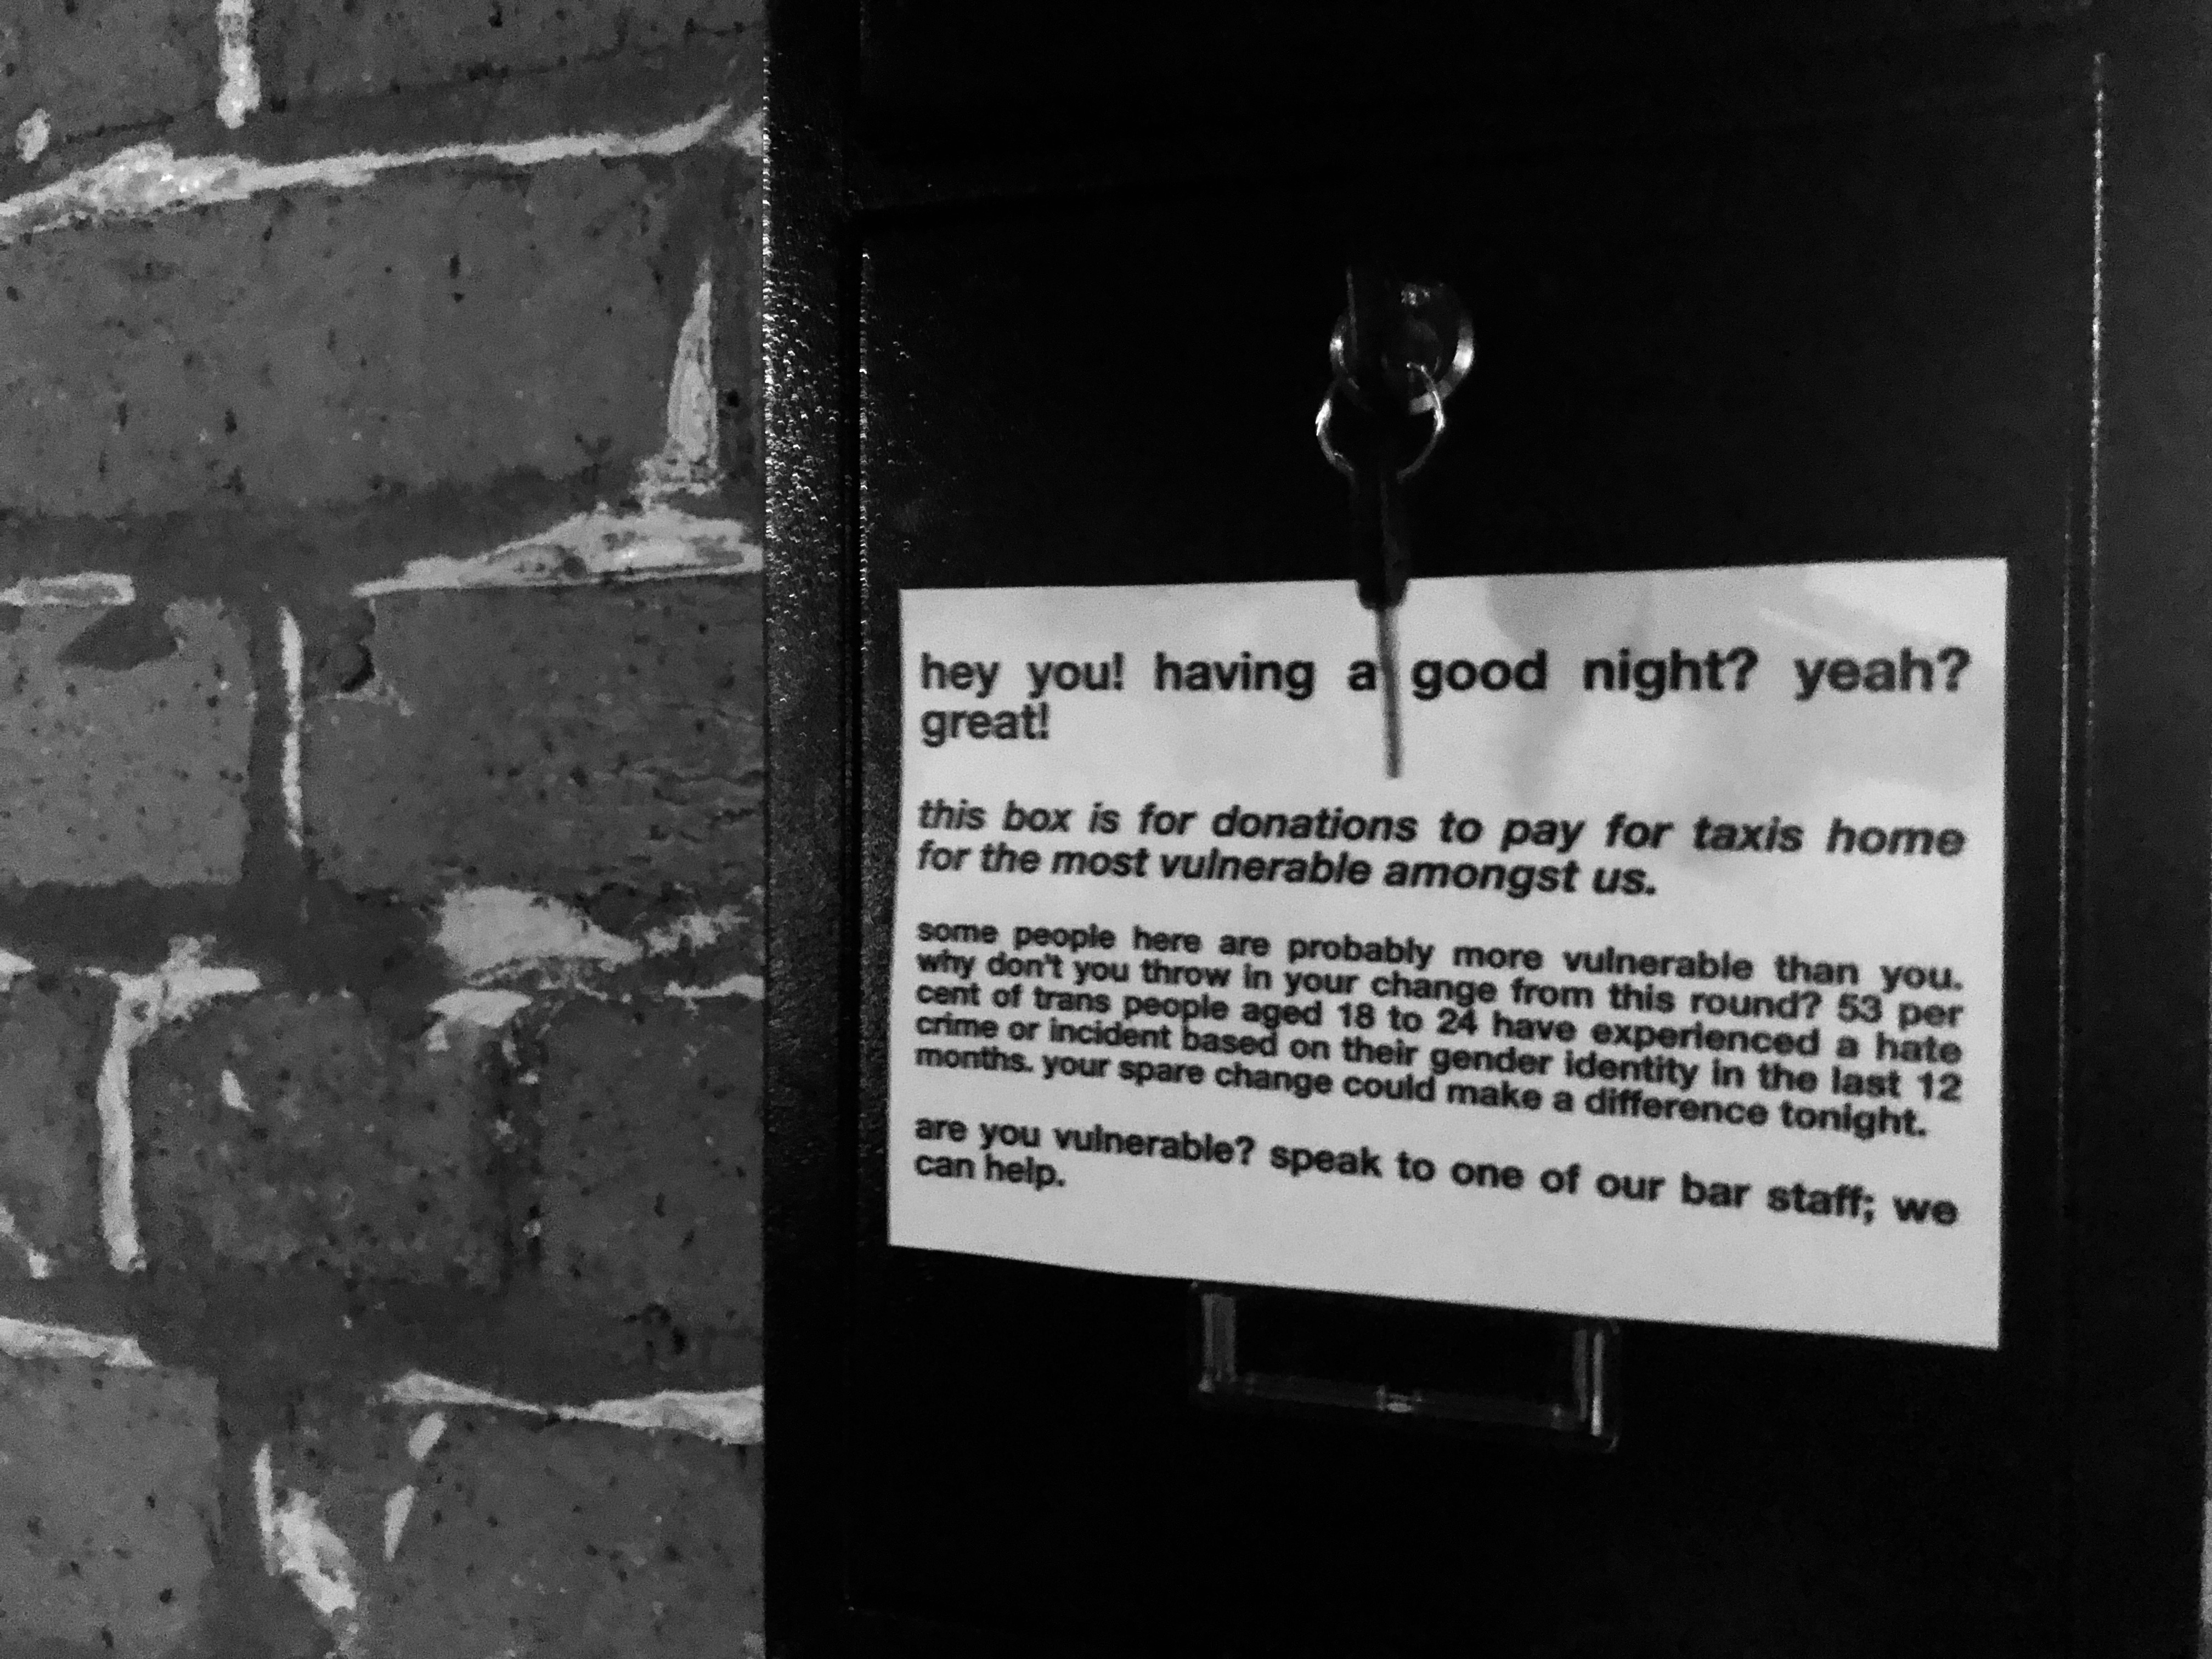 hey you! having a good night? yeah?
great!
this box is for donations to pay for taxis home
for the most vulnerable amongst us.
some people here are probably more vulnerable than you.
why don't you throw in your change from this round? 53 per
cent of trans people aged 18 to 24 have experienced a hate
crime or incident based on their gender identity in the last 12
months. your spare change could make a difference tonight.
are you vulnerable? speak to one of our bar staff; we
can help.